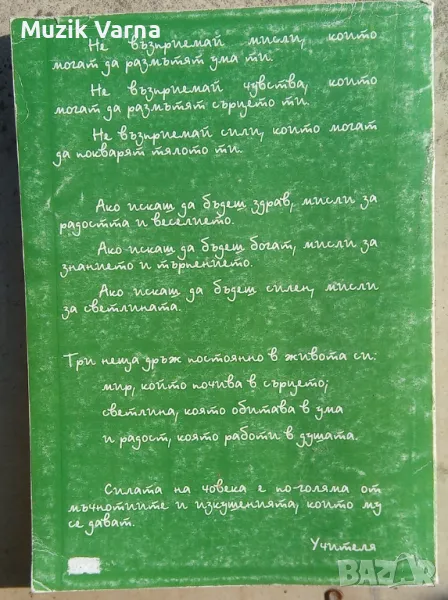 Muzik Varna
Не възприемай мисли, които
могат да размътят ума ти.
Не възприемай чувства, които
могат да размътят сърцето ти.
Не възприемай сили, които могат
да покварят тялото ти.
Ако искаш да бъдеш здрав, мисли за
радостта и веселието.
Ако искаш да бъдеш богат, мисли за
знанието и търпението.
Ако искаш да бъдеш силен, мисли
за светлината.
Три неща дръж постоянно в живота си:
мир, който почива в сърцето;
светлина, която обитава в ума
и радост, която работи в душата.
Силата на човека е по-голяма от
мъчнотиите и изкушенията, които му
се дават.
Учителя
BAZAR